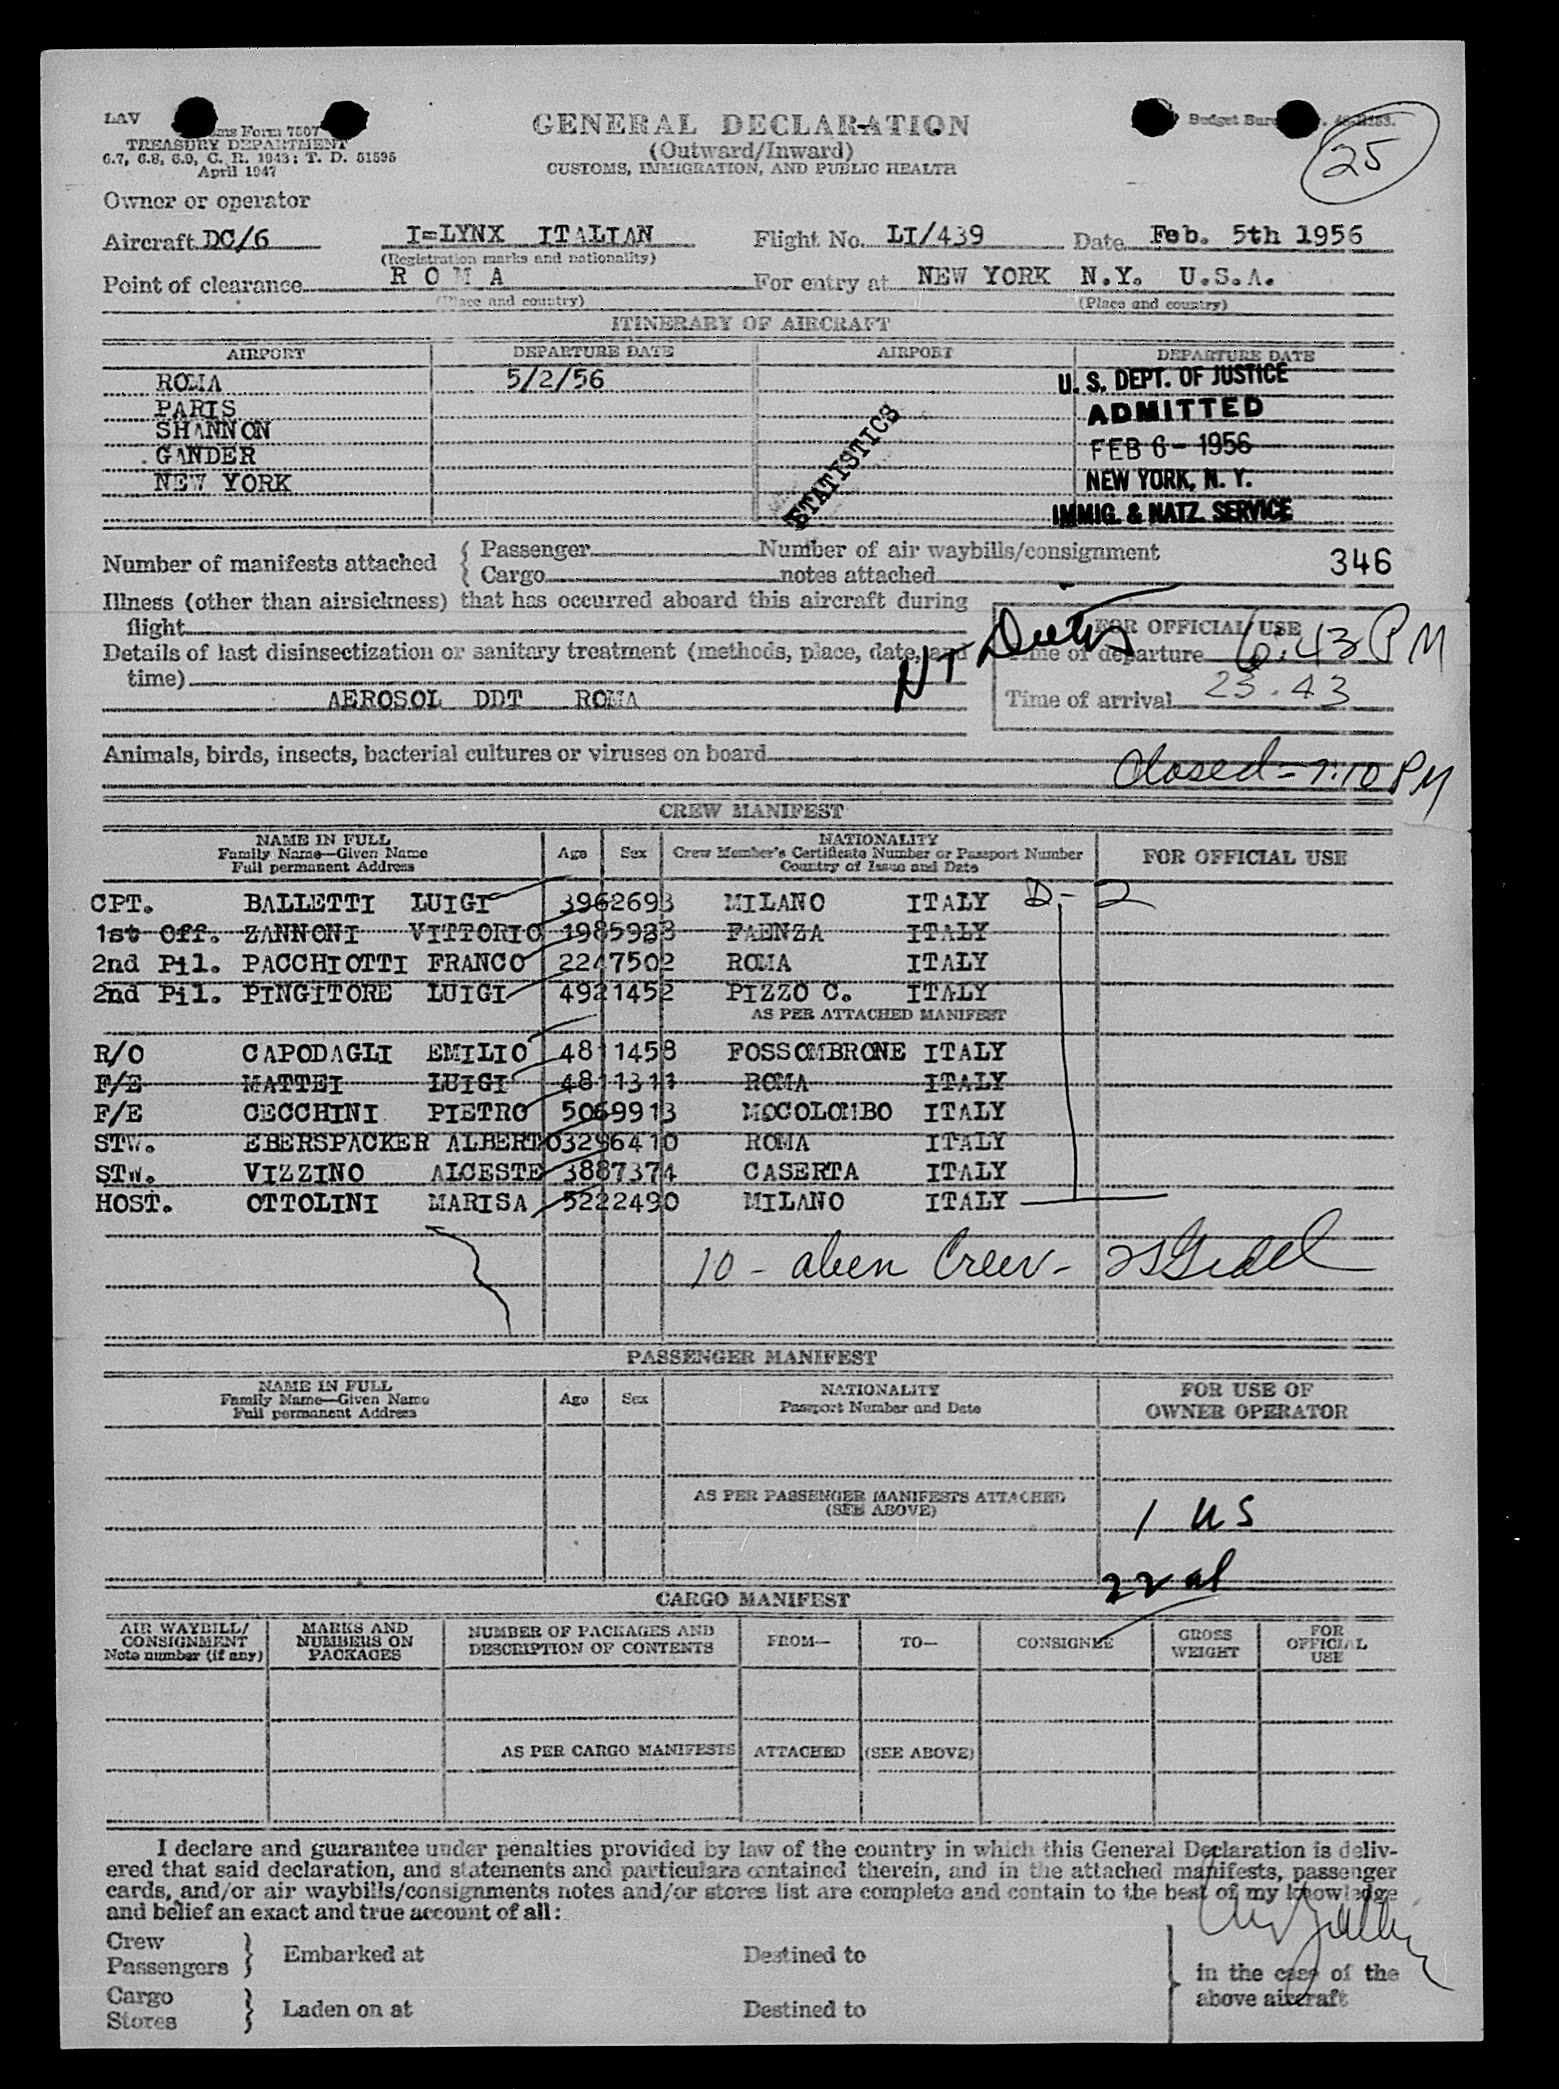 LAV
Customs Form 7507
TREASURY DEPARTMENT
6.7, 6.8, 6.9, C. R. 1943; T. D. 51595
April 1947
GENERAL DECLARATION
(Outward/Inward)
CUSTOMS, IMMIGRATION, AND PUBLIC HEALTH
Budget Bureau
25
Owner or operator
Aircraft DC/6 I=LYNX ITALIAN Flight No. LI/439 Date Feb. 5th 1956
(Registration marks and nationality)
Point of clearance ROMA For entry at NEW YORK N.Y. U.S.A.
(Place and country) (Place and country)
ITINERARY OF AIRCRAFT
AIRPORT DEPARTURE DATE AIRPORT DEPARTURE DATE
ROMA 5/2/56
PARIS
SHANNON
GANDER
NEW YORK
STATISTICS
U. S. DEPT. OF JUSTICE
ADMITTED
FEB 6 - 1956
NEW YORK, N. Y.
IMMIG. & NATZ. SERVICE
Number of manifests attached { Passenger Number of air waybills/consignment 346
{ Cargo notes attached
Illness (other than airsickness) that has occurred aboard this aircraft during
flight
Details of last disinsectization or sanitary treatment (methods, place, date, and
time)
AEROSOL DDT ROMA
FOR OFFICIAL USE
Time of departure 6:43 PM
Time of arrival 23.43
Animals, birds, insects, bacterial cultures or viruses on board
Closed - 7:10 PM
CREW MANIFEST
NAME IN FULL
Family Name—Given Name
Full permanent Address
Age Sex
NATIONALITY
Crew Member's Certificate Number or Passport Number
Country of Issue and Date
FOR OFFICIAL USE
CPT. BALLETTI LUIGI 3962693 MILANO ITALY D-2
1st Off. ZANNONI VITTORIO 1985983 FAENZA ITALY
2nd Pil. PACCHIOTTI FRANCO 2247502 ROMA ITALY
2nd Pil. PINGITORE LUIGI 4921452 PIZZO C. ITALY
AS PER ATTACHED MANIFEST
R/O CAPODAGLI EMILIO 4811458 FOSSOMBRONE ITALY
F/E MATTEI LUIGI 4811311 ROMA ITALY
F/E CECCHINI PIETRO 5069913 MOCOLOMBO ITALY
STW. EBERSPACKER ALBERTO 3296410 ROMA ITALY
STW. VIZZINO ALCESTE 3887374 CASERTA ITALY
HOST. OTTOLINI MARISA 5222490 MILANO ITALY
10 - alien Crew -
PASSENGER MANIFEST
NAME IN FULL
Family Name—Given Name
Full permanent Address
Age Sex
NATIONALITY
Passport Number and Date
FOR USE OF
OWNER OPERATOR
AS PER PASSENGER MANIFESTS ATTACHED
(SEE ABOVE)
1 US
22 al
CARGO MANIFEST
AIR WAYBILL/
CONSIGNMENT
Note number (if any)
MARKS AND
NUMBERS ON
PACKAGES
NUMBER OF PACKAGES AND
DESCRIPTION OF CONTENTS
FROM—
TO—
CONSIGNEE
GROSS
WEIGHT
FOR
OFFICIAL
USE
AS PER CARGO MANIFESTS ATTACHED (SEE ABOVE)
I declare and guarantee under penalties provided by law of the country in which this General Declaration is deliv-
ered that said declaration, and statements and particulars contained therein, and in the attached manifests, passenger
cards, and/or air waybills/consignments notes and/or stores list are complete and contain to the best of my knowledge
and belief an exact and true account of all:
Crew
Passengers } Embarked at Destined to
in the case of the
above aircraft
Cargo
Stores } Laden on at Destined to